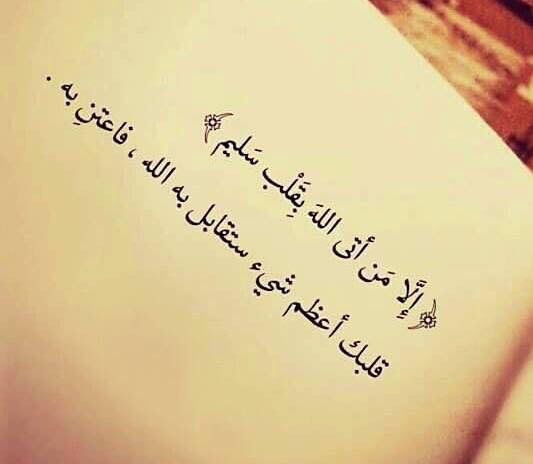 ﴿إِلَّا مَن أتى اللهَ بِقَلْب سَليم﴾
قلبك أعظم شيء ستقابل به الله ، فاعتنِ به .